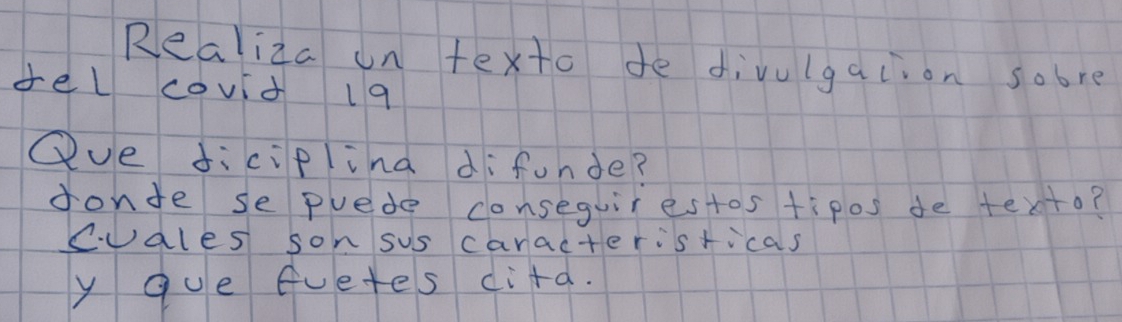 Realiza un texto de divulgacion sobre
del covid 19
Que diciplina difunde?
donde se puede conseguir estos tipos de texto?
Cuales son sus caracteristicas
y que fuetes cita.